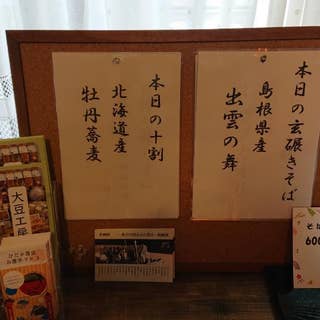 本日の玄碾きそば
島根県産
出雲の舞
本日の十割
北海道産
牡丹蕎麦
大豆工房
そば
600